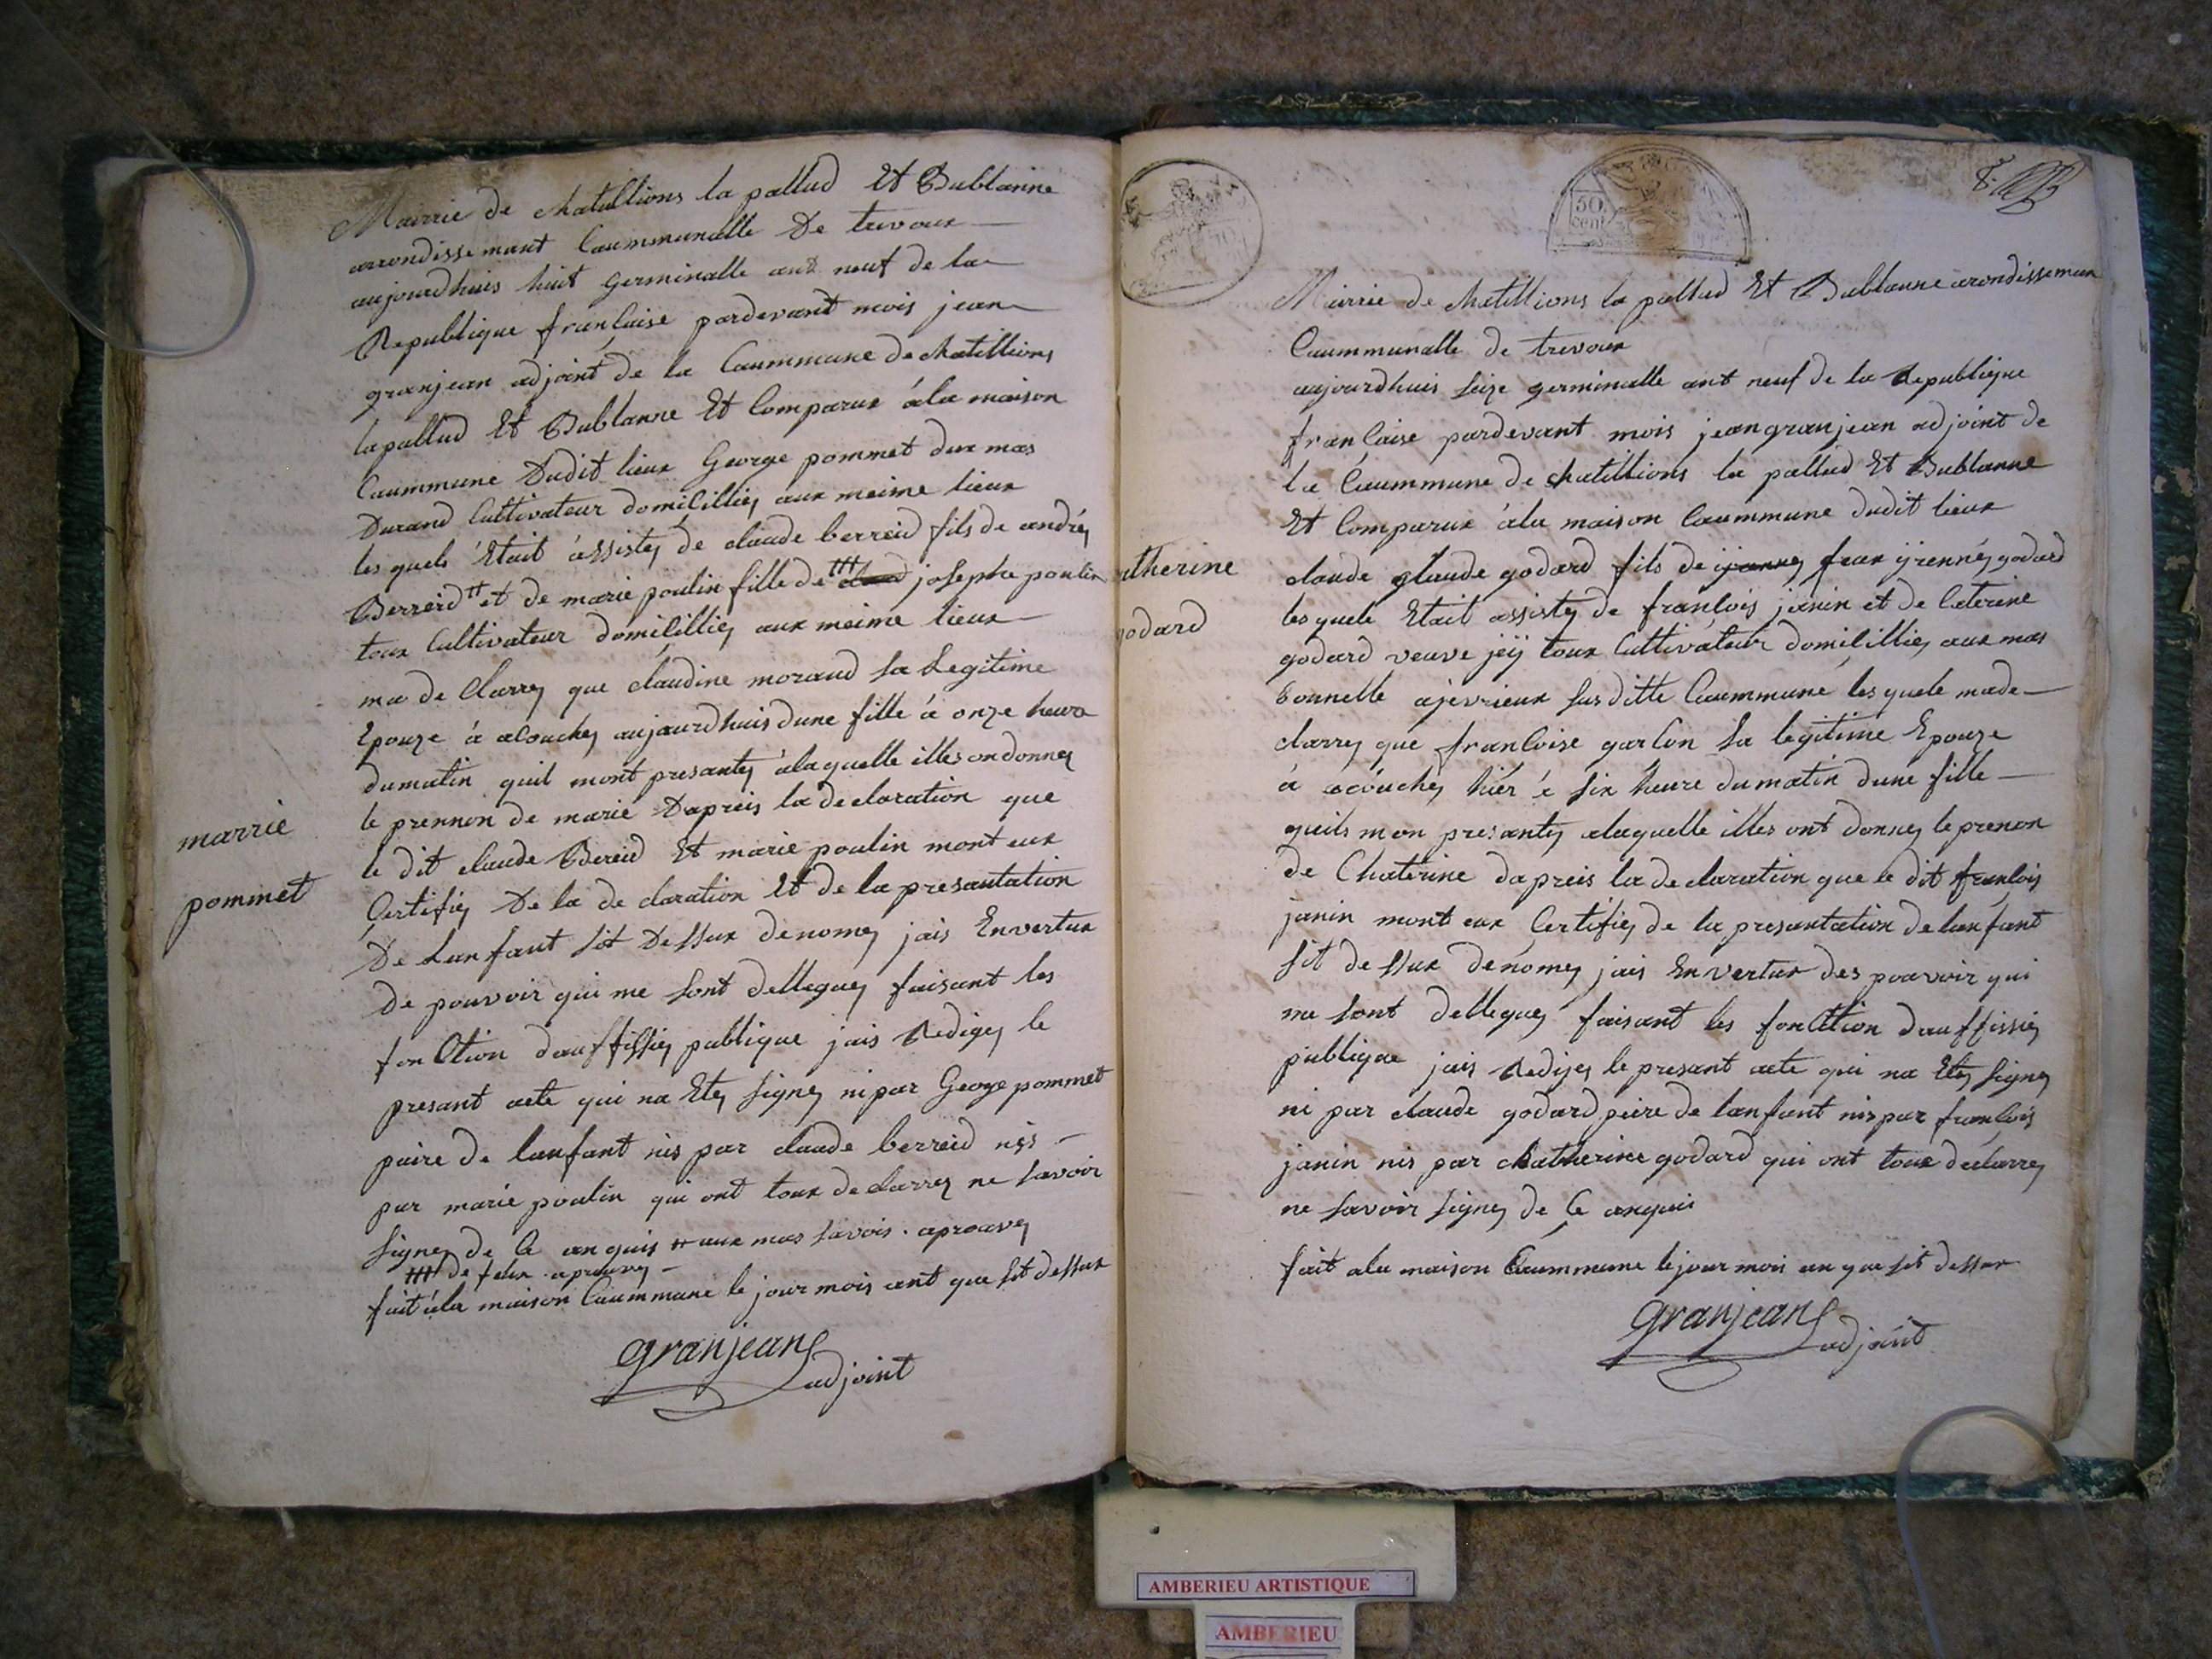 Mairrie de chatillions la pallud Et Bublanne
arrondissemant Caummunalle De trevoux
aujourdhuis huit germinalle ant neuf de la
Republique frančaise pardevant mois jean
granjean adjoint de la Caummune de chatillions
la pallud Et Bublanne Et Comparux à la maison
Caummune Dudit lieux George pommet dux mas
Durand Cultivateur domiçilliéz aux meime lieux
les quels Etait assistéz de claude berreid fils de andréz
Berreid tt et de marie poulin fille de ttt josepha poulin
toux Cultivateur domiçilliéz aux meime lieux
ma de Clarréz que claudine moraud sa Legitime
Epouze à acouchéz aujourdhuis dune fille à onze heure
dumatin quil mont presantéz àlaquelle illes ondonnéz
le prennon de marie Dapreis la declaration que
le dit claude Bereid Et marie poulin mont eux
Çertifiéz De la de claration Et de la presantation
De Lanfant sit Dessux denoméz jais Envertux
De pouvoir qui me sont delleguéz faisant les
fonCtion dauffissiéz publique jais Redigéz le
presant acte qui na Etéz signéz ni par George pommet
paire de lanfant nis par claude berreid nis
par marie poulin qui ont toux declarréz ne savoir
signéz de Ce anquis tt aux mas savois . aprouvéz
ttt de felix aprouvéz
fait àla maison Caummune le jour mois ant que sit dessux
granjean
adjoint
marrie
pommet
50
cent
8.
Mairrie de chatillions la pallud Et Bublanne arondisseman
Caummunalle de trevoux
aujourdhuis seize germinalle ant neuf de la Republique
francaise pardevant mois jean granjean adjoint de
la Caummune de chatillions la pallud Et Bublanne
Et Comparux àla maison Caummune dudit lieux
claude glaude godard fils de feux yrennéz godard
les quels Etait assistéz de françois janin et de Caterine
godard veuve jeÿ toux Cultivateur domiçilliéz aux mas
bonnelle ajevrieux susditte Caummune les quele made
clarréz que françoise garlon sa legitime Epouze
à acouchéz hiér é six heure dumatin dune fille
quils mon presantéz alaquelle illes ont donnéz le prenon
de Chaterine dapreis la de claration que le dit françois
janin mont eux Çertifiéz de la presantation de lanfant
sit dessux denoméz jais Envertux des pouvoir qui
me sont delleguéz faisant les fonCtion dauffissiéz
publique jais Redigéz le presant acte qui na Etéz signéz
ni par claude godard peire de lanfant nis par françois
janin nis par chatherine godard qui ont toux declarréz
ne savoir signéz de Çe anquis
fait ala maison Caummune le jour mois an que sit dessux
granjean
adjoint
therine
godard
AMBERIEU ARTISTIQUE
AMBERIEU